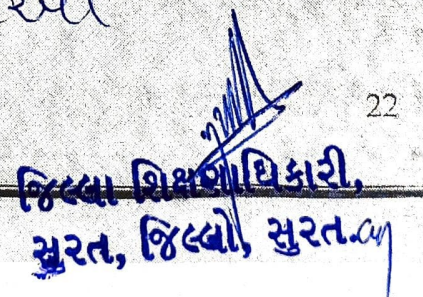 22
જિલ્લા શિક્ષણાધિકારી,
સુરત, જિલ્લો, સુરત.